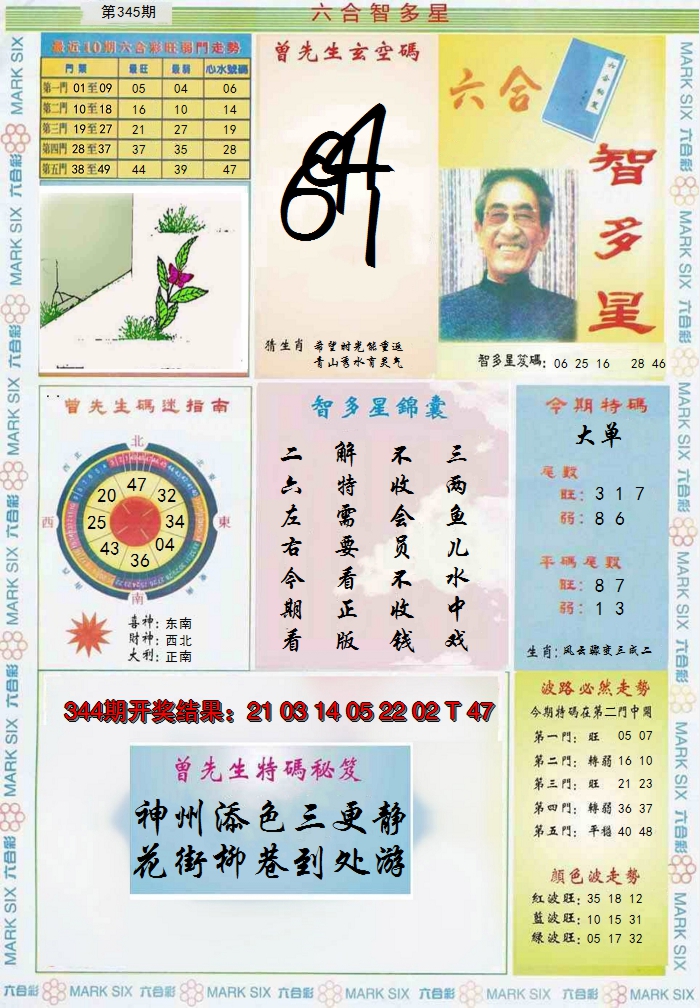 第345期
六合智多星
最近10期六合彩旺弱門走勢
門類 最旺 最弱 心水號碼
第一門 01至09 05 04 06
第二門 10至18 16 10 14
第三門 19至27 21 27 19
第四門 28至37 37 35 28
第五門 38至49 44 39 47
曾先生玄空碼
猜生肖 希望时光能重返
青山秀水育灵气
六合
智多星
智多星笈碼: 06 25 16 28 46
曾先生碼迷指南
北
西
東
南
47
32
34
04
36
43
25
20
喜神: 东南
财神: 西北
大利: 正南
智多星錦囊
三两鱼儿水中戏
不收会员不收钱
解特需要看正版
二六左右今期看
今期特碼
大单
尾數
旺: 3 1 7
弱: 8 6
平碼尾數
旺: 8 7
弱: 1 3
生肖: 风云骤变三成二
344期开奖结果: 21 03 14 05 22 02 T 47
曾先生特碼秘笈
神州添色三更静
花街柳巷到处游
波路必然走勢
今期特碼在第二門中開
第一門: 旺 05 07
第二門: 轉弱 16 10
第三門: 旺 21 23
第四門: 轉弱 36 37
第五門: 平穩 40 48
顏色波走勢
紅波旺: 35 18 12
藍波旺: 10 15 31
綠波旺: 05 17 32
六合彩 MARK SIX 六合彩 MARK SIX 六合彩 MARK SIX 六合彩 MARK SIX 六合彩